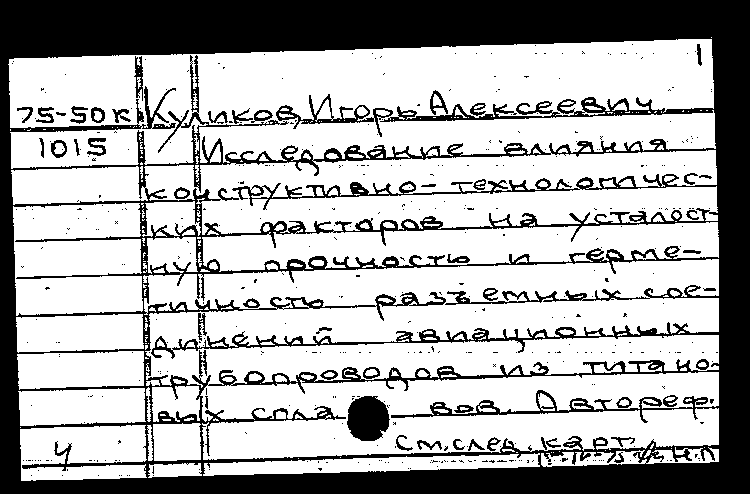 1
75-50к Куликов, Игорь Алексеевич.
1015 Исследование влияния
конструктивно-технологичес-
ких факторов на усталост-
ную прочность и герме-
тичность разъемных сое-
динений авиационных
трубопроводов из титано-
вых спла вов. Автореф.
4 См. след. карт.
Н.Л